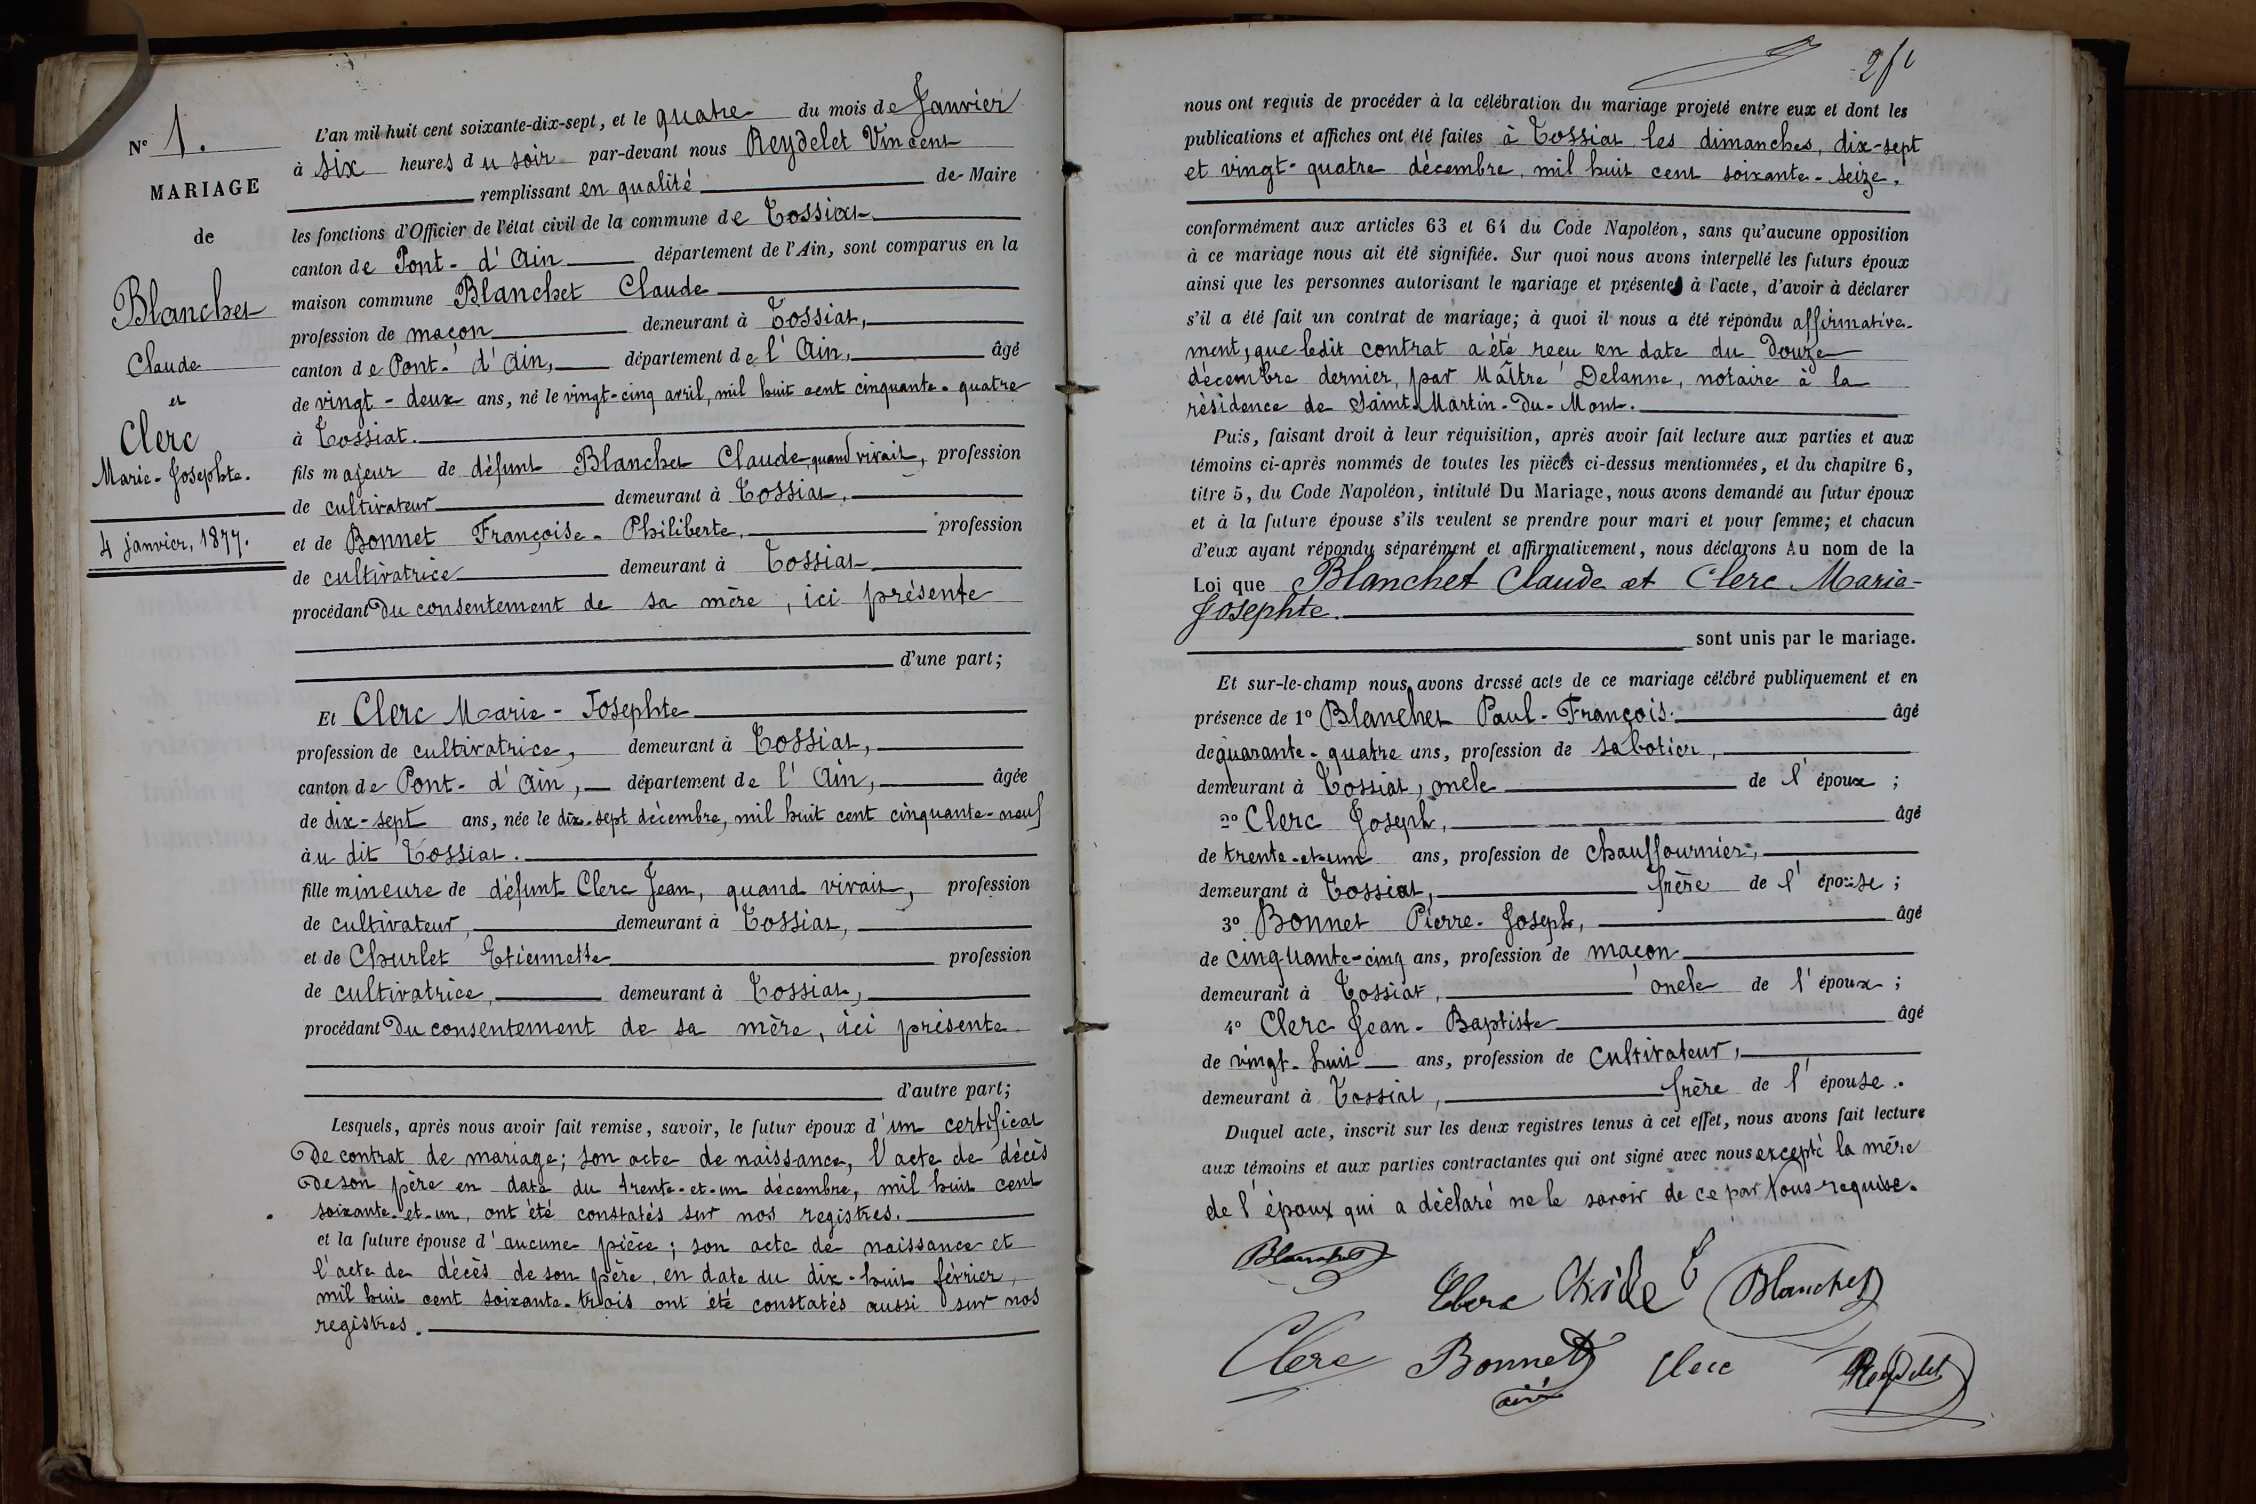 N° 1.
MARIAGE
de
Blanchet
Claude
et
Clerc
Marie-Josephte.
4 janvier, 1877.
L'an mil huit cent soixante-dix-sept, et le quatre du mois de Janvier
à six heures du soir par-devant nous Reydelet Vincent
remplissant en qualité de Maire
les fonctions d'Officier de l'état civil de la commune de Tossiat
canton de Pont-d'Ain département de l'Ain, sont comparus en la
maison commune Blanchet Claude
profession de maçon demeurant à Tossiat,
canton de Pont-d'Ain, département de l'Ain, âgé
de vingt-deux ans, né le vingt-cinq avril, mil huit cent cinquante-quatre
à Tossiat.
fils majeur de défunt Blanchet Claude, quand vivait, profession
de cultivateur demeurant à Tossiat,
et de Bonnet Françoise-Philiberte, profession
de cultivatrice demeurant à Tossiat
procédant du consentement de sa mère, ici présente
d'une part;
Et Clerc Marie-Josephte
profession de cultivatrice, demeurant à Tossiat,
canton de Pont-d'Ain, département de l'Ain, âgée
de dix-sept ans, née le dix-sept décembre, mil huit cent cinquante-neuf
àu dit Tossiat.
fille mineure de défunt Clerc Jean, quand vivait, profession
de cultivateur, demeurant à Tossiat,
et de Churlet Etiennette profession
de cultivatrice, demeurant à Tossiat,
procédant du consentement de sa mère, ici présente
d'autre part;
Lesquels, après nous avoir fait remise, savoir, le futur époux d'un certificat
de contrat de mariage; son acte de naissance, l'acte de décès
de son père en date du trente-et-un décembre, mil huit cent
soixante-et-un, ont été constatés sur nos registres.
et la future épouse d'aucune pièce; son acte de naissance et
l'acte de décès de son père, en date du dix-huit février,
mil huit cent soixante-trois ont été constatés aussi sur nos
registres.
nous ont requis de procéder à la célébration du mariage projeté entre eux et dont les
publications et affiches ont été faites à Tossiat les dimanches, dix-sept
et vingt-quatre décembre, mil huit cent soixante-seize.
conformément aux articles 63 et 64 du Code Napoléon, sans qu'aucune opposition
à ce mariage nous ait été signifiée. Sur quoi nous avons interpellé les futurs époux
ainsi que les personnes autorisant le mariage et présentes à l'acte, d'avoir à déclarer
s'il a été fait un contrat de mariage; à quoi il nous a été répondu affirmative-
ment, que ledit contrat a été reçu en date du douze
décembre dernier, par Maître Delanne, notaire à la
résidence de Saint-Martin-du-Mont.
Puis, faisant droit à leur réquisition, après avoir fait lecture aux parties et aux
témoins ci-après nommés de toutes les pièces ci-dessus mentionnées, et du chapitre 6,
titre 5, du Code Napoléon, intitulé Du Mariage, nous avons demandé au futur époux
et à la future épouse s'ils veulent se prendre pour mari et pour femme; et chacun
d'eux ayant répondu séparément et affirmativement, nous déclarons Au nom de la
Loi que Blanchet Claude et Clerc Marie-
Josephte.
sont unis par le mariage.
Et sur-le-champ nous avons dressé acte de ce mariage célébré publiquement et en
présence de 1° Blanchet Paul-François. âgé
de quarante-quatre ans, profession de sabotier,
demeurant à Tossiat, oncle de l'époux;
2° Clerc Joseph, âgé
de trente-et-un ans, profession de chauffournier,
demeurant à Tossiat, frère de l'épouse;
3° Bonnet Pierre-Joseph, âgé
de cinquante-cinq ans, profession de maçon
demeurant à Tossiat, oncle de l'époux;
4° Clerc Jean-Baptiste âgé
de vingt-huit ans, profession de cultivateur,
demeurant à Tossiat, frère de l'épouse.
Duquel acte, inscrit sur les deux registres tenus à cet effet, nous avons fait lecture
aux témoins et aux parties contractantes qui ont signé avec nous excepté la mère
de l'époux qui a déclaré ne le savoir de ce par nous requise.
Blanchet
Clerc Blanchet
Clerc Bonnet Clerc Reydelet